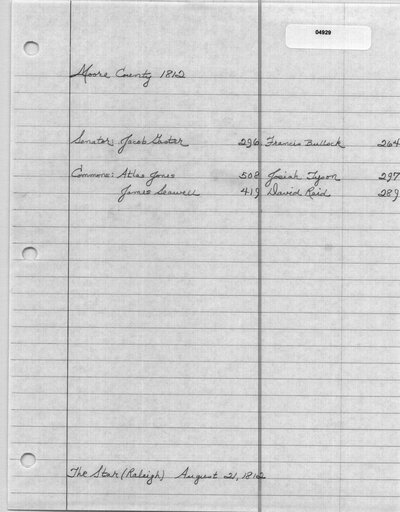 04929
Moore County 1812
Senator: Jacob Gaster 296 Francis Bullock 264
Commons: Atlas Jones 508 Josiah Tyson 297
James Seawell 419 David Reid 289
The Star (Raleigh) August 21, 1812